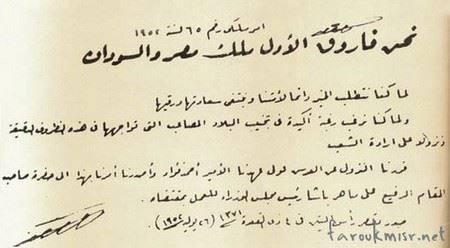 امر ملكي رقم ٦٥ لسنة ١٩٥٢
نحن فاروق الأول ملك مصر والسودان
لما كنا نتطلب الخير دائما لأمتنا ونبتغى سعادتها ورقيها
ولما كنا نرغب رغبة أكيدة فى تجنيب البلاد المصاعب التى تواجهها فى هذه الظروف الدقيقة
ونزولا على ارادة الشعب
قررنا النزول عن العرش لولى عهدنا الأمير أحمد فؤاد وأصدرنا أمرنا بهذا الى حضرة صاحب
المقام الرفيع على ماهر باشا رئيس مجلس الوزراء للعمل بمقتضاه
صدر بقصر رأس التين فى ٤ ذى القعدة ١٣٧١ (٢٦ يوليه ١٩٥٢)
faroukmisr.net